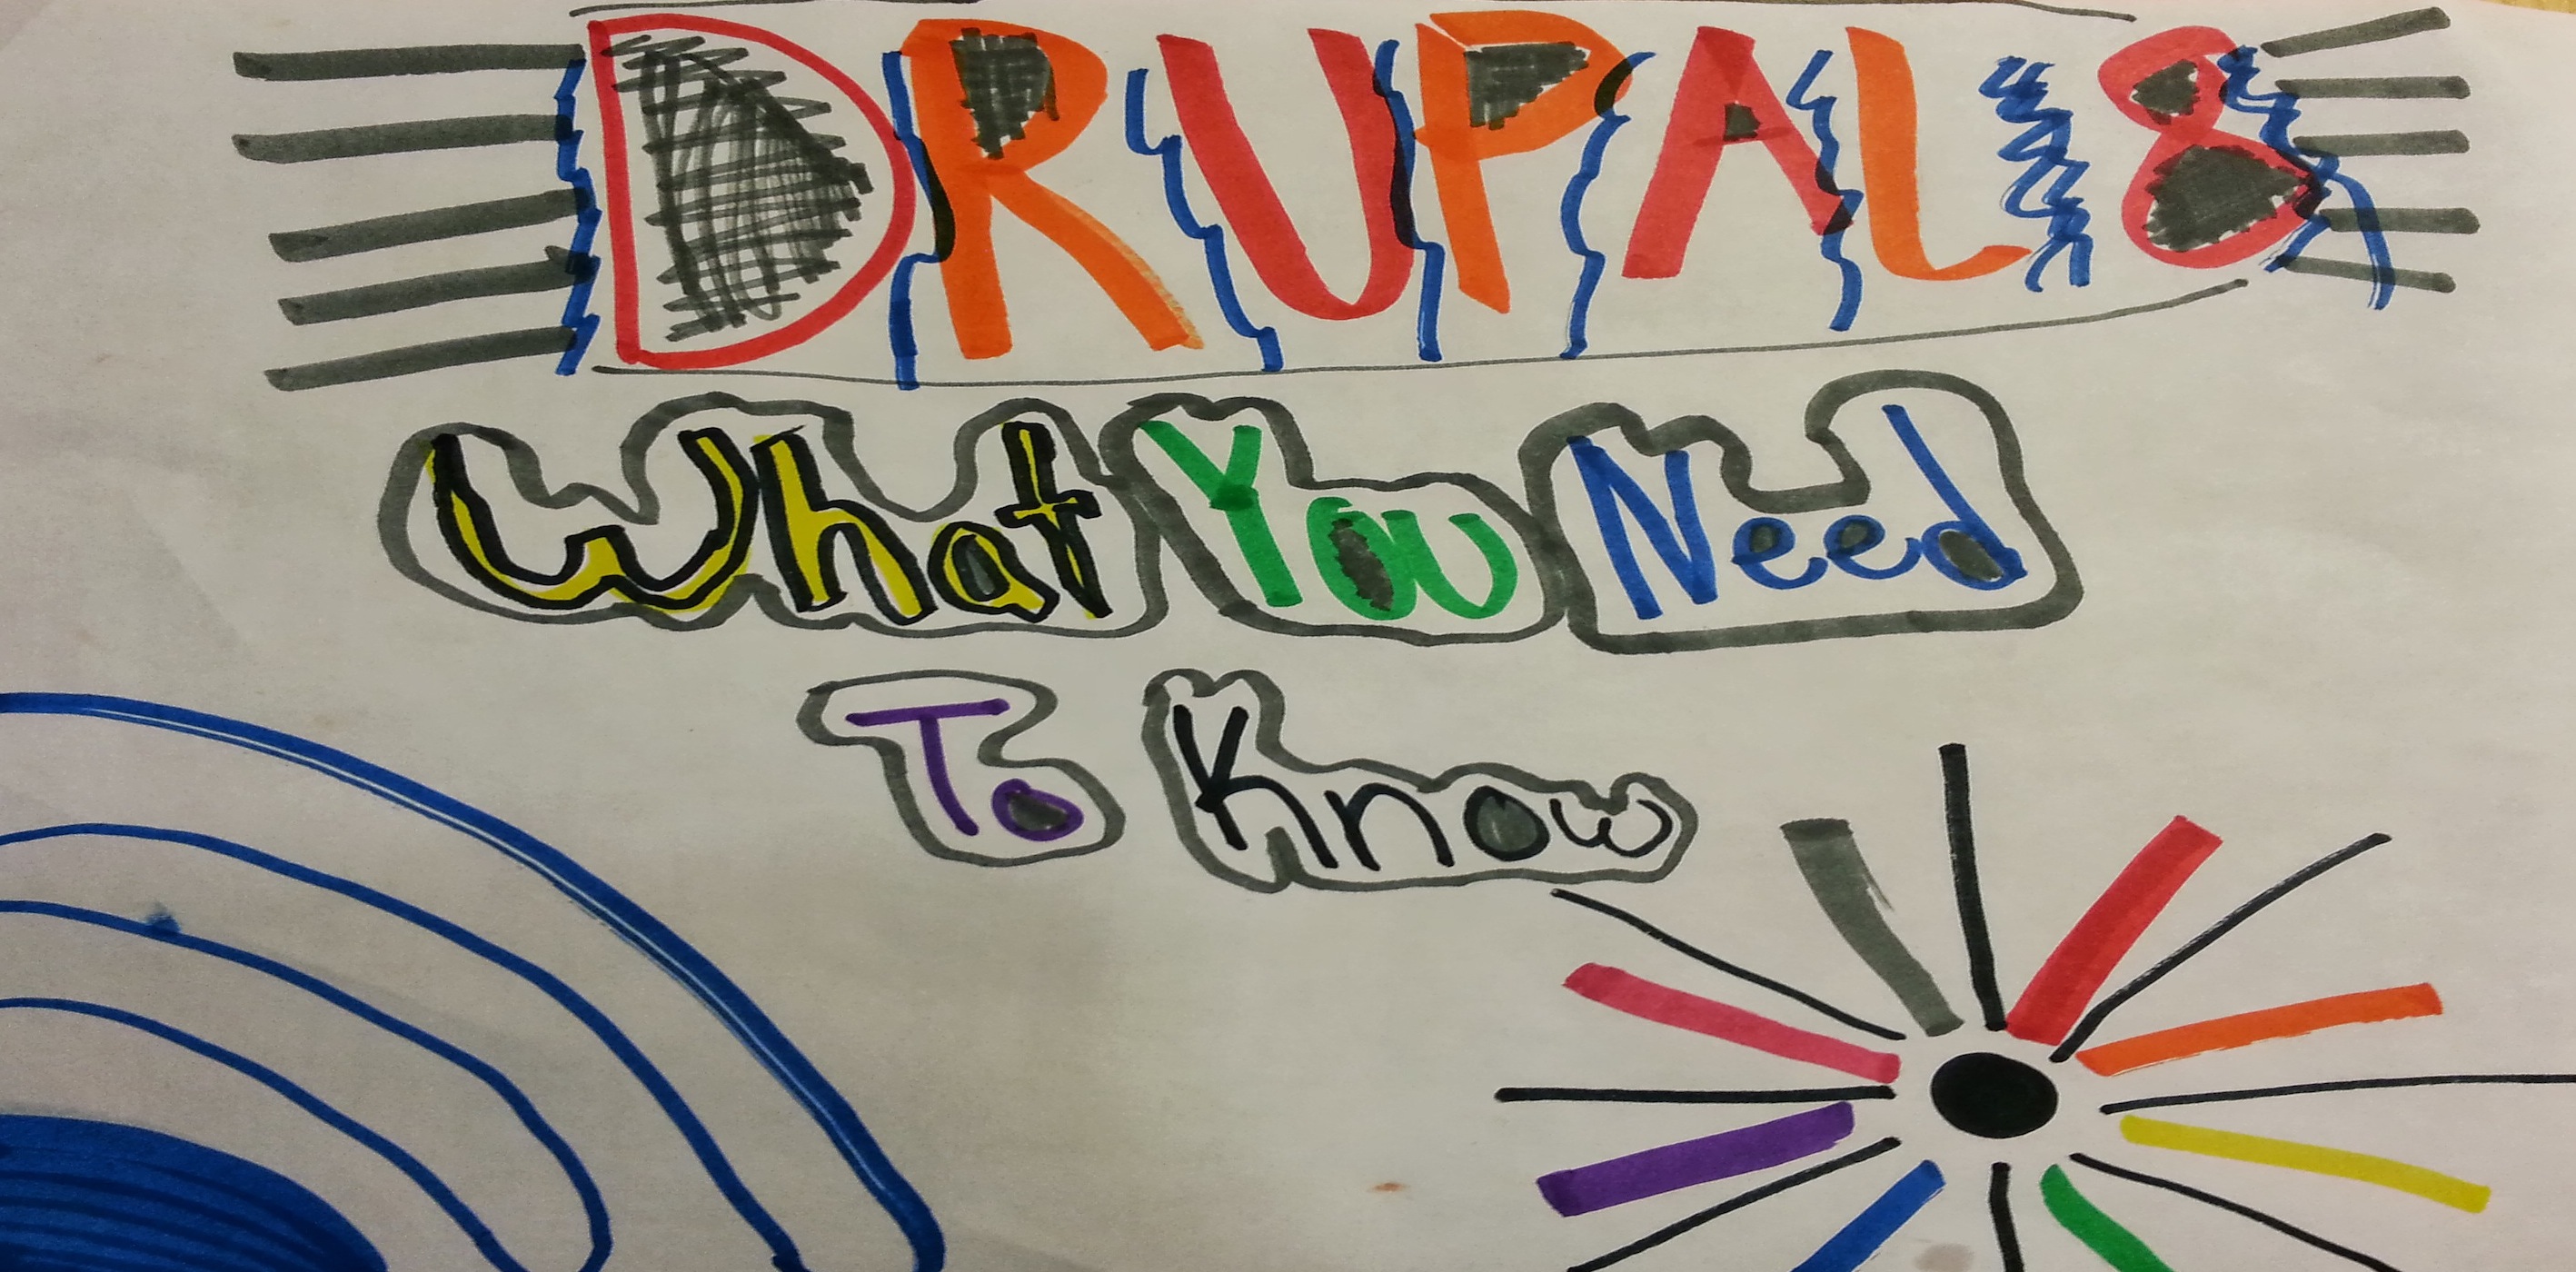 DRUPAL 8
What You Need
To Know